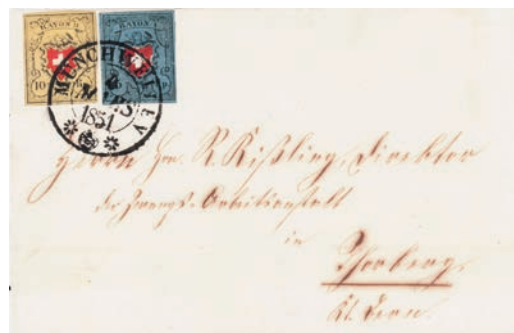 RAYON
RAYON
10
MÜNCHWEILEN
1851
Herrn Hrn. R. Kißling, Direktor
der Zwangs-Arbeitsanstalt
in
Thorberg.
Kt. Bern.